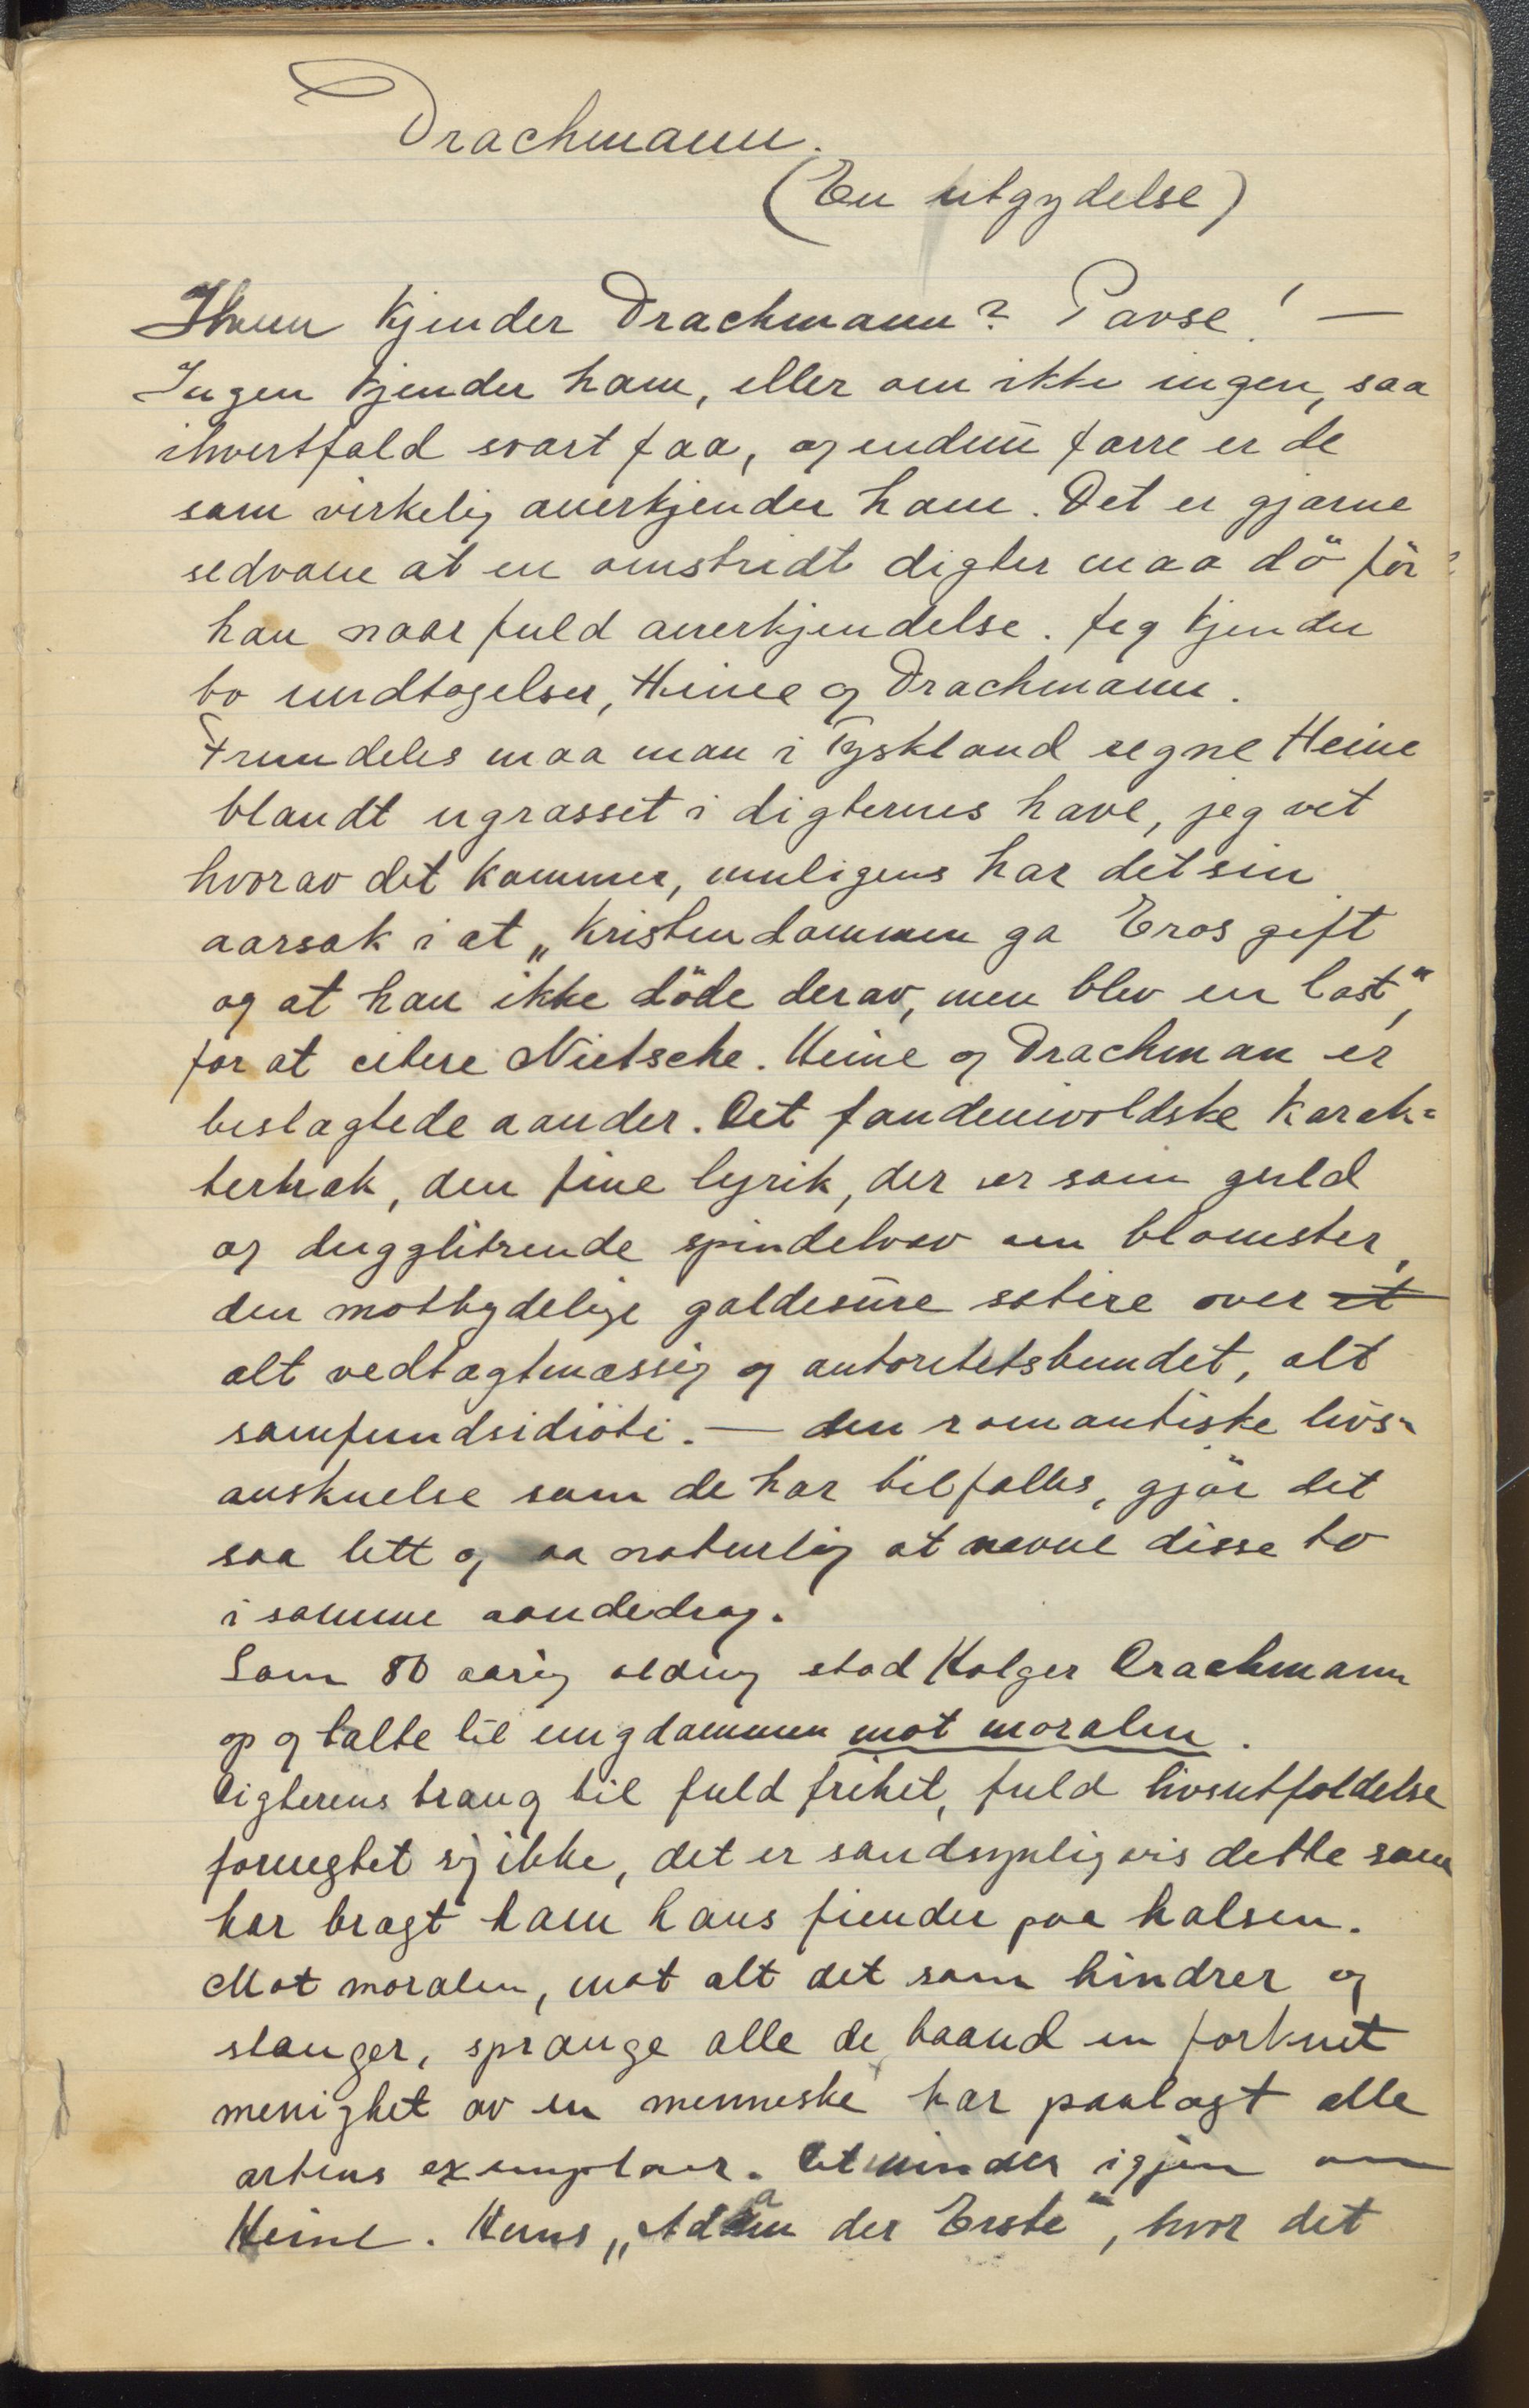 Drachmann.
(En utgydelse)
Hvem kjender Drachmann? Pavse! —
Ingen kjender ham, eller om ikke ingen, saa
ihvertfald svært faa, og endnu færre er de
som virkelig anerkjender ham. Det er gjærne
sedvane at en omstridt digter maa dö för
han naar fuld anerkjendelse. Jeg kjender
to undtagelser, Heine og Drachmann.
Fremdeles maa man i Tyskland regne Heine
blandt ugræsset i digternes have, jeg vet
hvorav det kommer, muligens har det sin
aarsak i at „Kristendommen ga Eros gift
og at han ikke döde derav, men blev en last“,
for at citere Nietsche. Heine og Drachman er
beslægtede aander. Det fandenivoldske karak=
tertræk, den fine lyrik, der er som guld
og dugglitrende spindelvæv om blomster,
den motbydelige galdesure satire over et
alt vedtægtmæssig og autoritetsbundet, alt
samfundsidioti. — den romantiske livs-
anskuelse som de har tilfælles, gjör det
saa lett og saa naturlig at nævne disse to
i samme aandedrag.
Som 80 aarig olding stod Holger Drachmann
op og talte til ungdommen mot moralen.
Digterens trang til fuld frihet, fuld livsutfoldelse
fornegtet sig ikke, det er sandsynligvis dette som
har bragt ham hans fiender paa halsen.
Mot moralen, mot alt det som hindrer og
stænger, sprænge alle de baand en forknet
menighet av en menneske har paalagt alle
artens exemplarer. Det minder igjen om
Heine. Hans „Adam der Erste“, hvor det